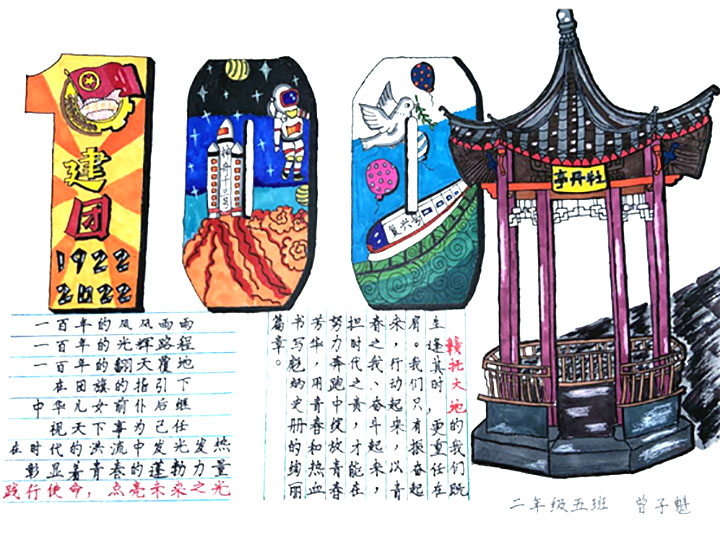 建团
1922
2022
复兴号
牡丹亭
一百年的风风雨雨
一百年的光辉路程
一百年的翻天覆地
在团旗的指引下
中华儿女前仆后继
视天下事为己任
在时代的洪流中发光发热
彰显着青春的蓬勃力量
践行使命，点亮未来之光
赣抚大地的我们既
生逢其时，更重任在
肩。我们只有振奋起
来，行动起来，以青
春之我、奋斗起来，
担时代之责，才能在
努力奔跑中绽放青春
芳华，用青春和热血
书写彪炳史册的绚丽
篇章。
二年级五班 曾子魁